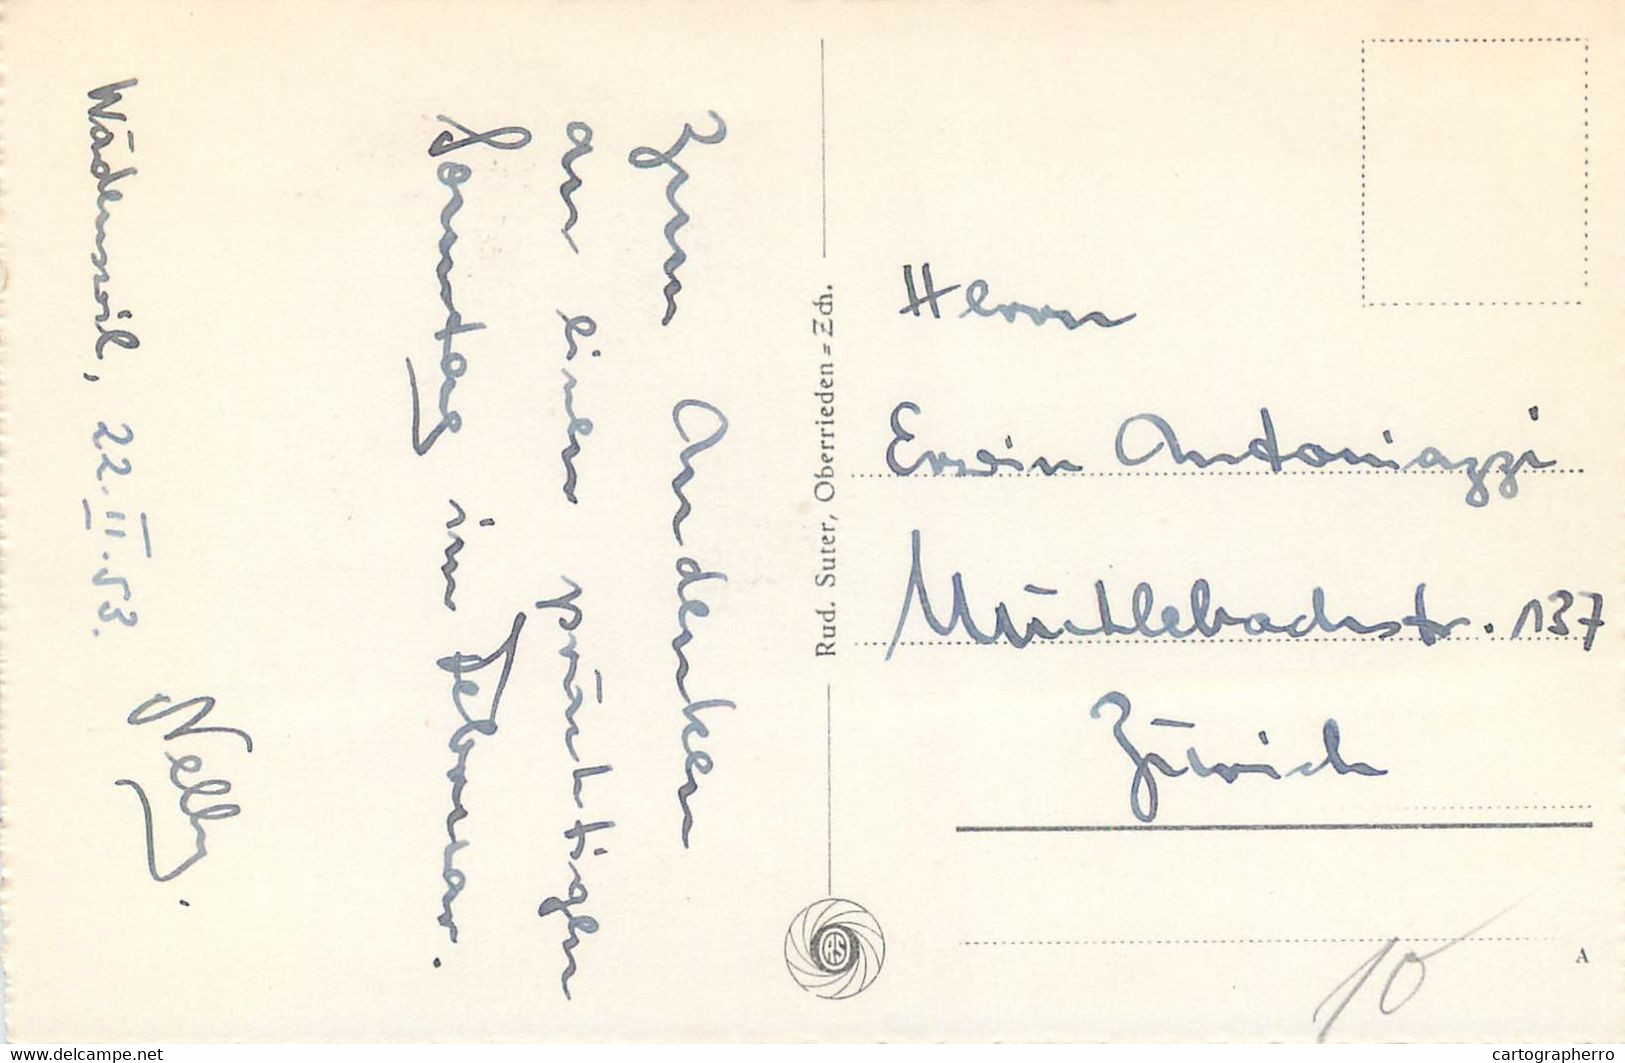 Zum Andenken
an einen prächtigen
Sonntag im Februar.
Wädenswil, 22.II.53.
Nelly.
Rud. Suter, Oberrieden=Zch.
Herrn
Erwin Antoniazzi
Mühlebachstr. 137
Zürich
RS
A
10
www.delcampe.net
cartographerro